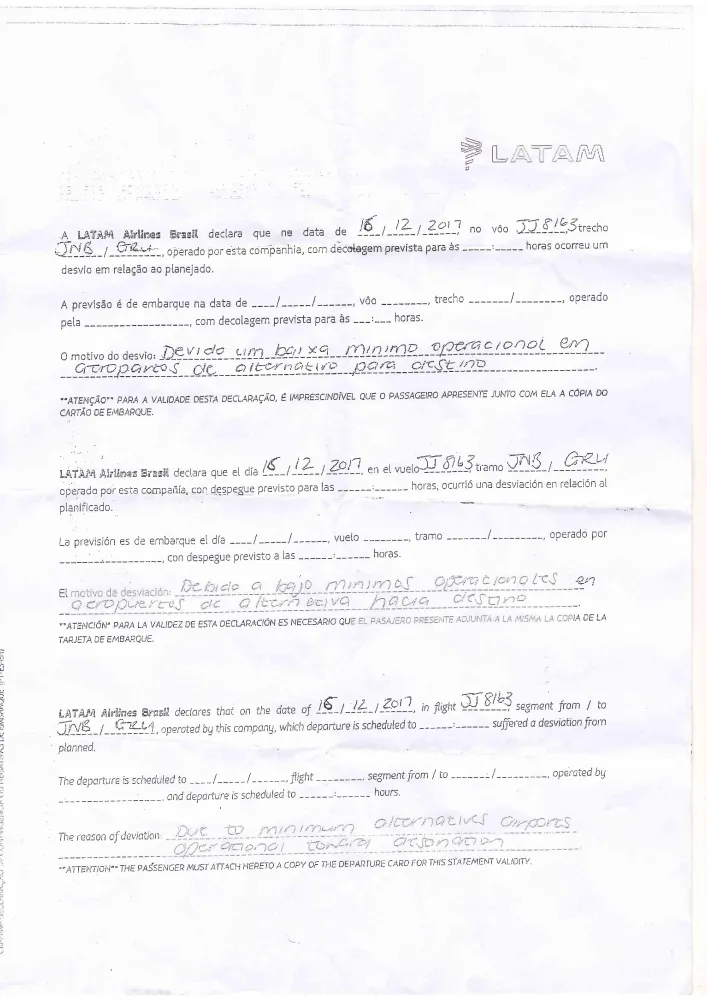 LATAM
A LATAM Airlines Brasil declara que na data de 16/12/2017 no vôo JJ8163 trecho
JNB / GRU, operado por esta companhia, com decolagem prevista para às _____:_____ horas ocorreu um
desvio em relação ao planejado.
A previsão é de embarque na data de ____/_____/______, vôo ________, trecho _______/________, operado
pela __________________, com decolagem prevista para às ___:___ horas.
O motivo do desvio: Devido um baixa minimo operacional em
aeroportos de alternativo para destino
**ATENÇÃO** PARA A VALIDADE DESTA DECLARAÇÃO, É IMPRESCINDÍVEL QUE O PASSAGEIRO APRESENTE JUNTO COM ELA A CÓPIA DO
CARTÃO DE EMBARQUE.
LATAM Airlines Brasil declara que el día 16/12/2017, en el vuelo JJ8163 tramo JNB / GRU,
operado por esta compañía, con despegue previsto para las ______:______ horas, ocurrió una desviación en relación al
planificado.
La previsión es de embarque el día ____/_____/______, vuelo ________, tramo _______/_________, operado por
__________________, con despegue previsto a las ______:______ horas.
El motivo de desviación: Debido a bajo minimos operacionales en
aeropuertos de alternativa hacia destino
**ATENCIÓN* PARA LA VALIDEZ DE ESTA DECLARACIÓN ES NECESARIO QUE EL PASAJERO PRESENTE ADJUNTA A LA MISMA LA COPIA DE LA
TARJETA DE EMBARQUE.
LATAM Airlines Brasil declares that on the date of 16/12/2017, in flight JJ8163 segment from / to
JNB / GRU, operated by this company, which departure is scheduled to ______:______ suffered a desviation from
planned.
The departure is scheduled to ____/_____/______, flight ________, segment from / to ______/_________, operated by
__________________ and departure is scheduled to ______:______ hours.
The reason of deviation Due to minimum alternatives airports
operational toward
**ATTENTION** THE PASSENGER MUST ATTACH HERETO A COPY OF THE DEPARTURE CARD FOR THIS STATEMENT VALIDITY.